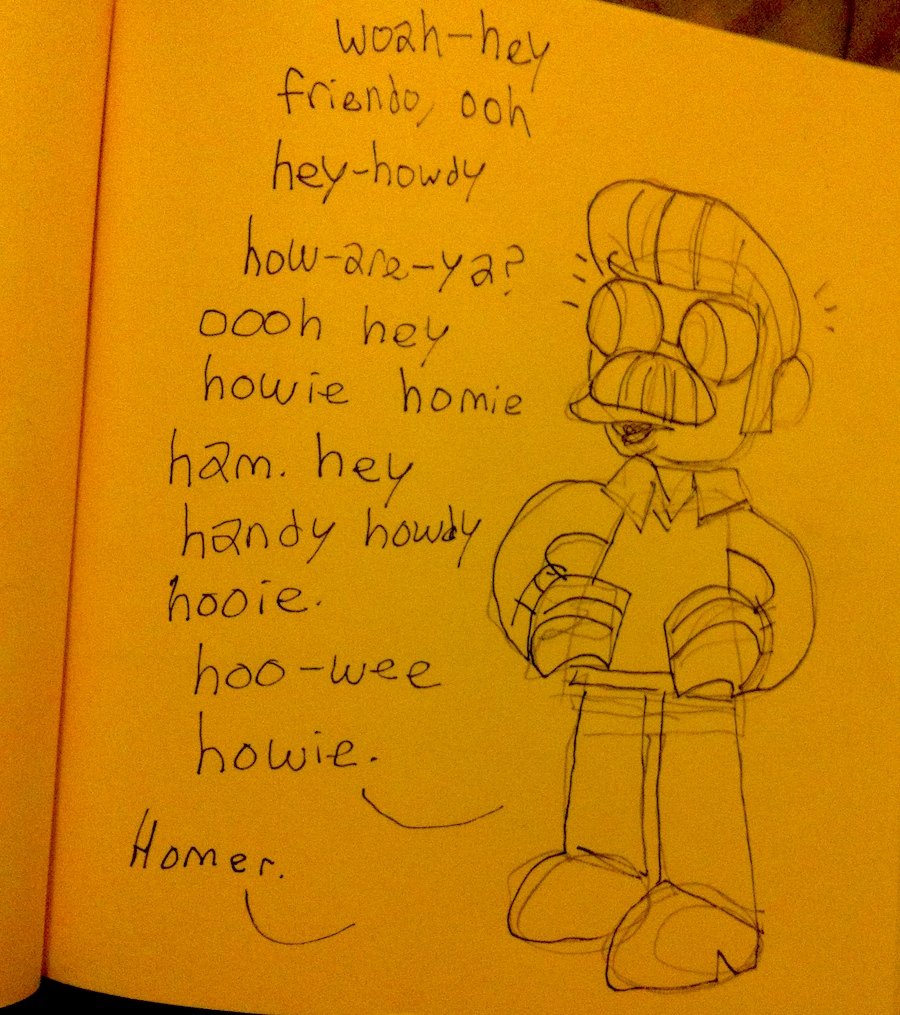 woah-hey
friendo, ooh
hey-howdy
how-are-ya?
oooh hey
howie homie
ham. hey
handy howdy
hooie.
hoo-wee
howie.
Homer.